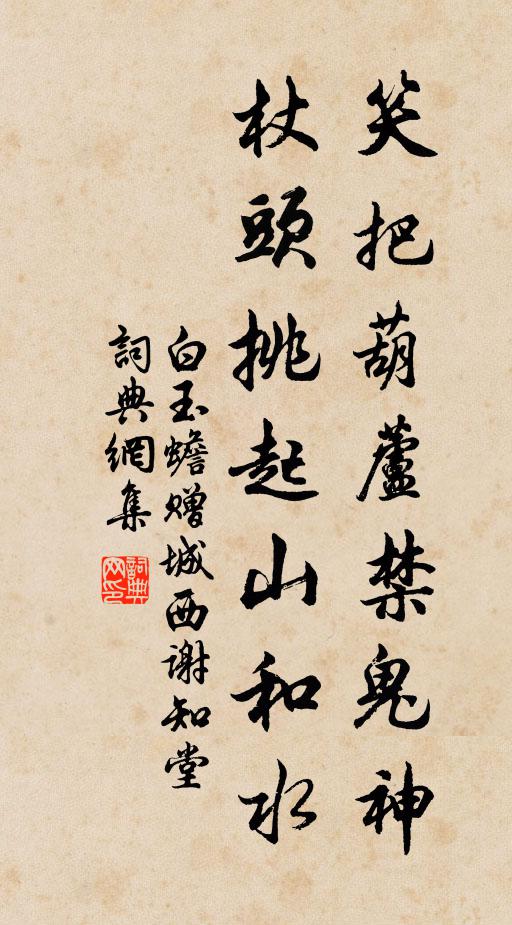 笑把葫蘆禁鬼神
杖頭挑起山和水
白玉蟾赠城西谢知堂
詞典網集
詞典网印